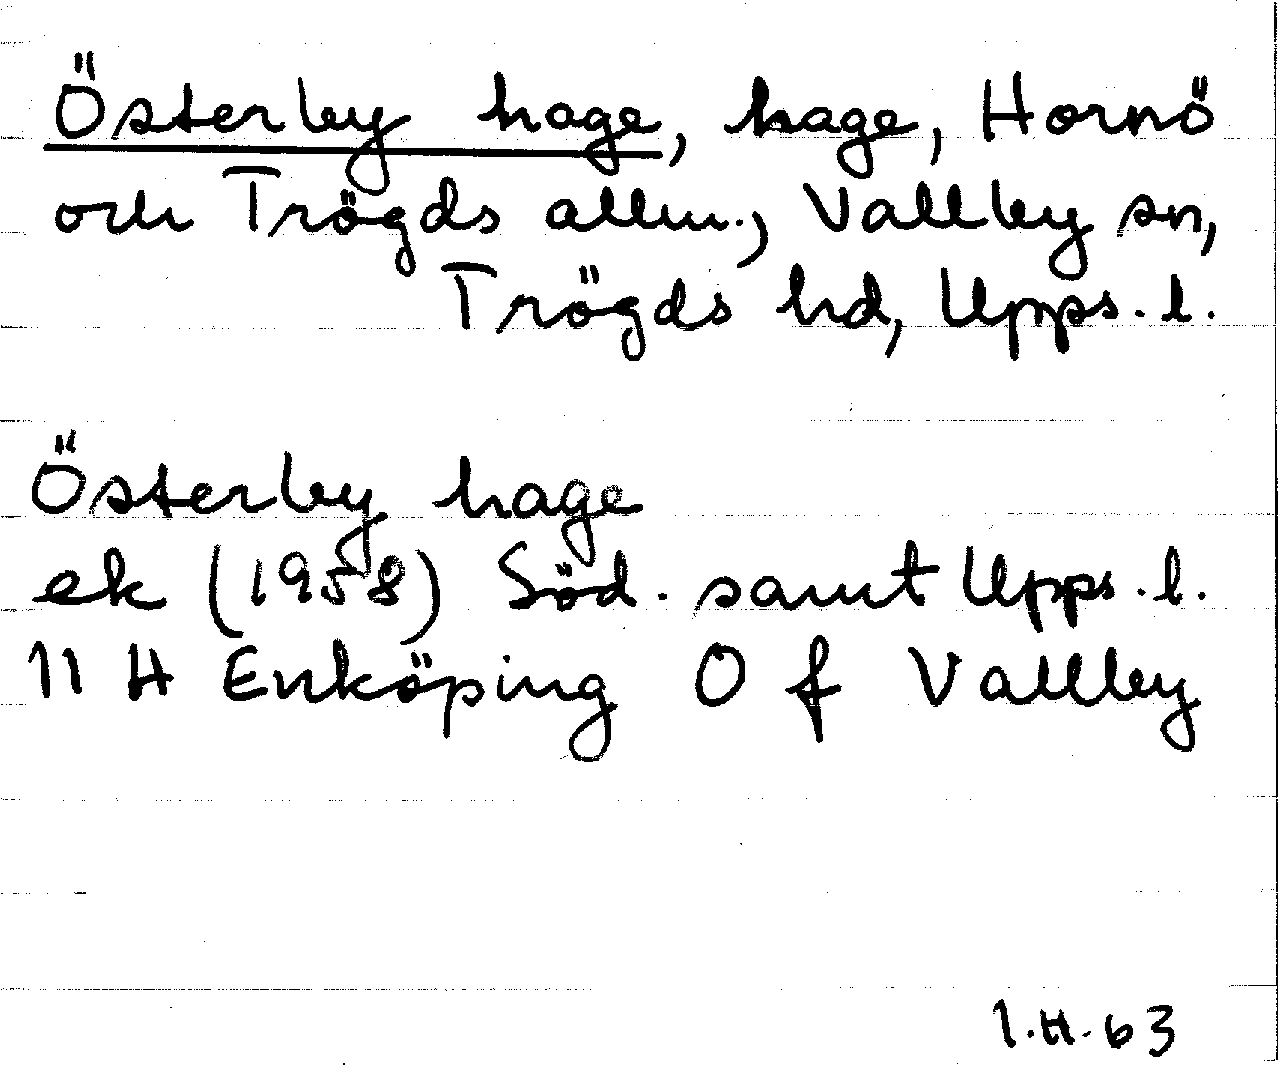 Österby hage, hage, Hornö
och Trögds allm., Vallby sn,
Trögds hd, Upps. l.
Österby hage
ek (1958) Söd. samt Upps. l.
11 H Enköping O f Vallby
1.H.63